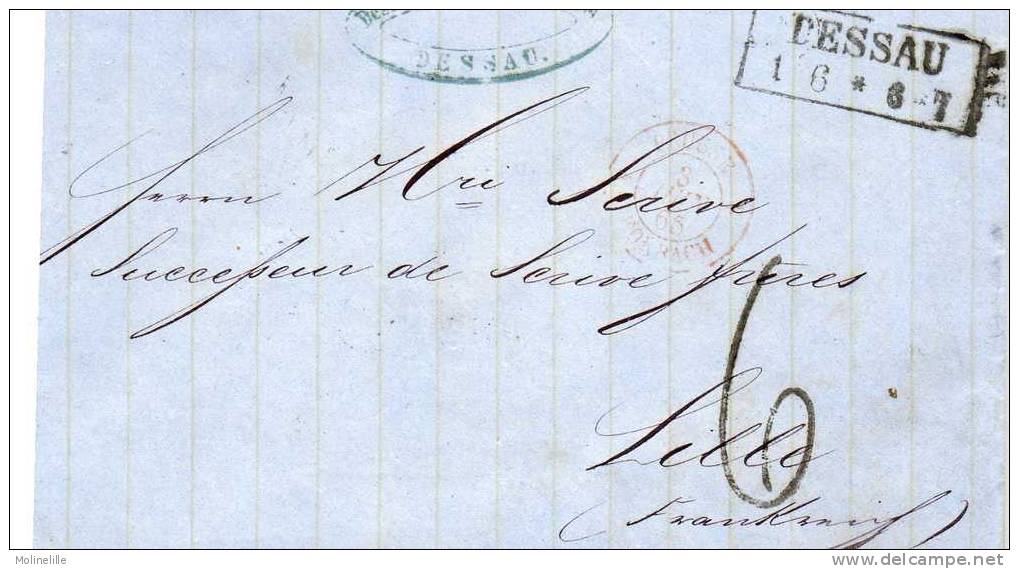 DESSAU.
DESSAU
1 6 * 6-7
3
65
FORBACH
Herrn Hri Scrive
Successeur de Scrive frères
6
Lille
(Frankreich)
Molinelille
www.delcampe.net